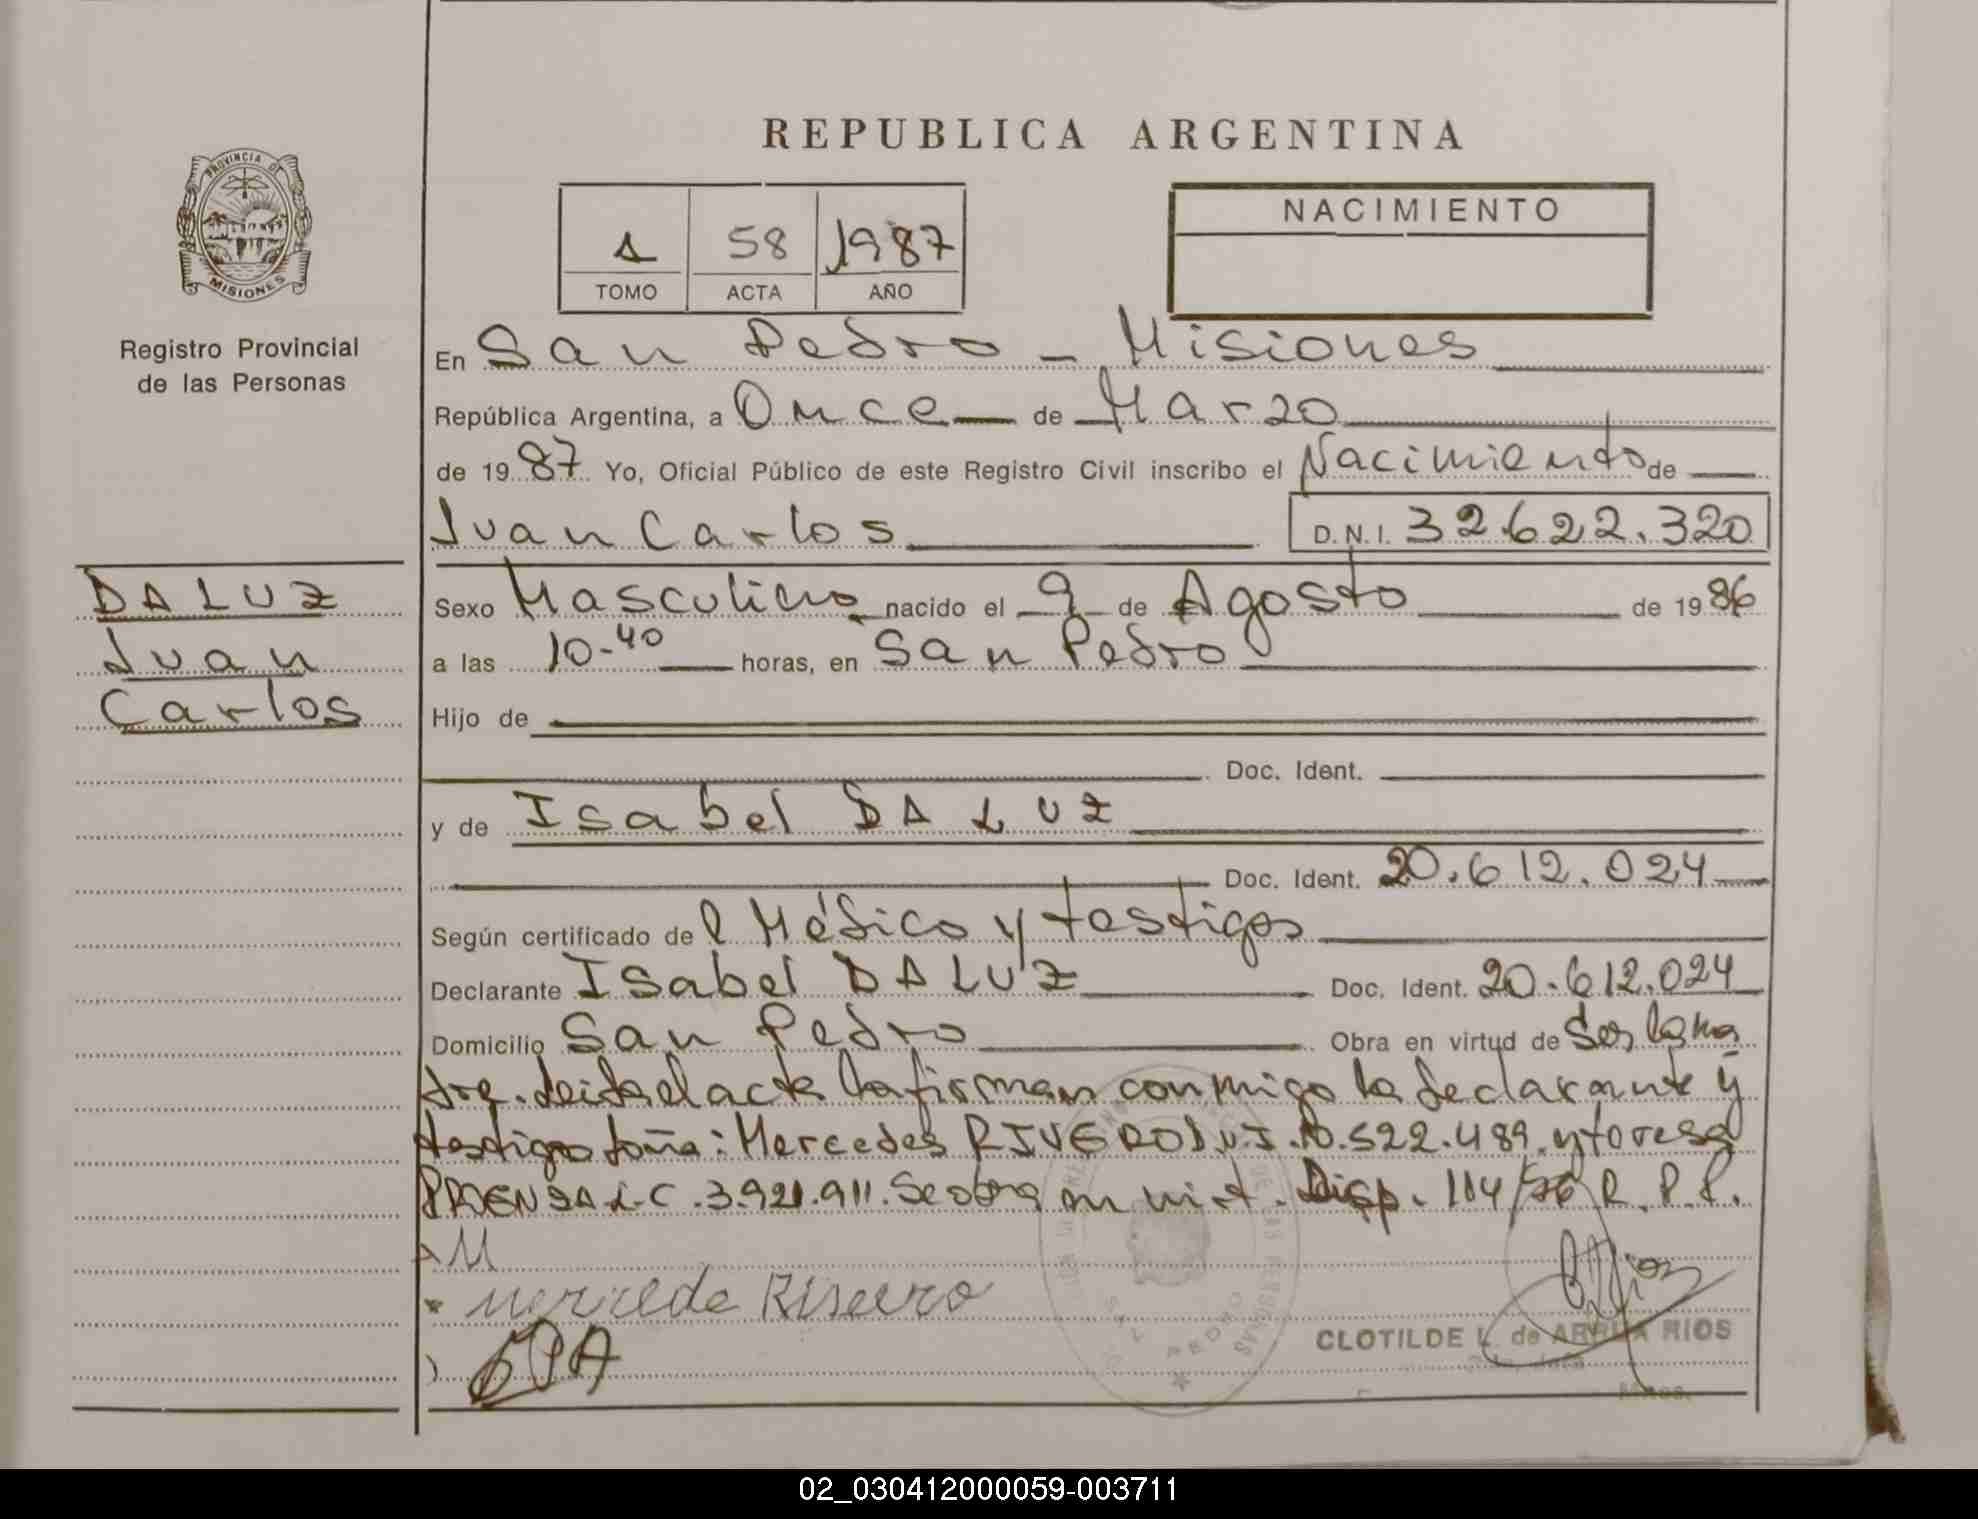 REPUBLICA ARGENTINA
PROVINCIA DE
MISIONES
Registro Provincial
de las Personas
1 58 1987
TOMO ACTA AÑO
NACIMIENTO
En San Pedro - Misiones
República Argentina, a Once de Marzo
de 19 87 Yo, Oficial Público de este Registro Civil inscribo el Nacimiento de
Juan Carlos D.N.I. 32.622.320
DA LUZ
Juan
Carlos
Sexo Masculino nacido el 9 de Agosto de 19 86
a las 10-40 horas, en San Pedro
Hijo de
Doc. Ident.
y de Isabel DA LUZ
Doc. Ident. 20.612.024
Según certificado de l Médico y testigos
Declarante Isabel DA LUZ Doc. Ident. 20.612.024
Domicilio San Pedro Obra en virtud de Ser la ma
dre. Leida el acta la firman conmigo la declarante y
testigos doña: Mercedes RIVERO D.N.I. 10.522.489 y toresa
PROENZA L.C. 3.921.911. Se obra en virt. Disp. 114/76 R.P.P.
Rivero
CLOTILDE L. de ARRUA RIOS
Mnes.
SAN PEDRO
02_030412000059-003711